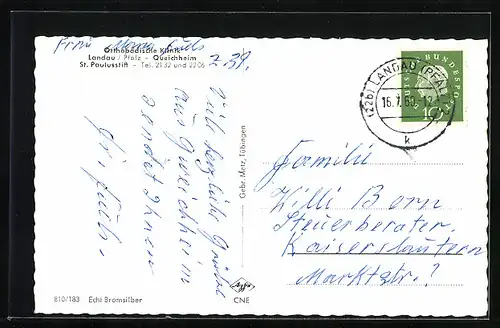 Frau Fuchs
Z. 39.
Orthopädische Klinik
Landau / Pfalz - Queichheim
St. Paulusstift - Tel. 2132 und 2206
Viele herzliche Grüße
aus Queichheim
sendet Ihnen
Fr. Fuchs.
Gebr. Metz, Tübingen
DEUTSCHE BUNDESPOST
10
(22b) LANDAU (PFALZ)
k
Familie
Willi Born
Steuerberater.
Kaiserslautern
Marktstr. ?
810/183 Echt Bromsilber
Agfa
CNE